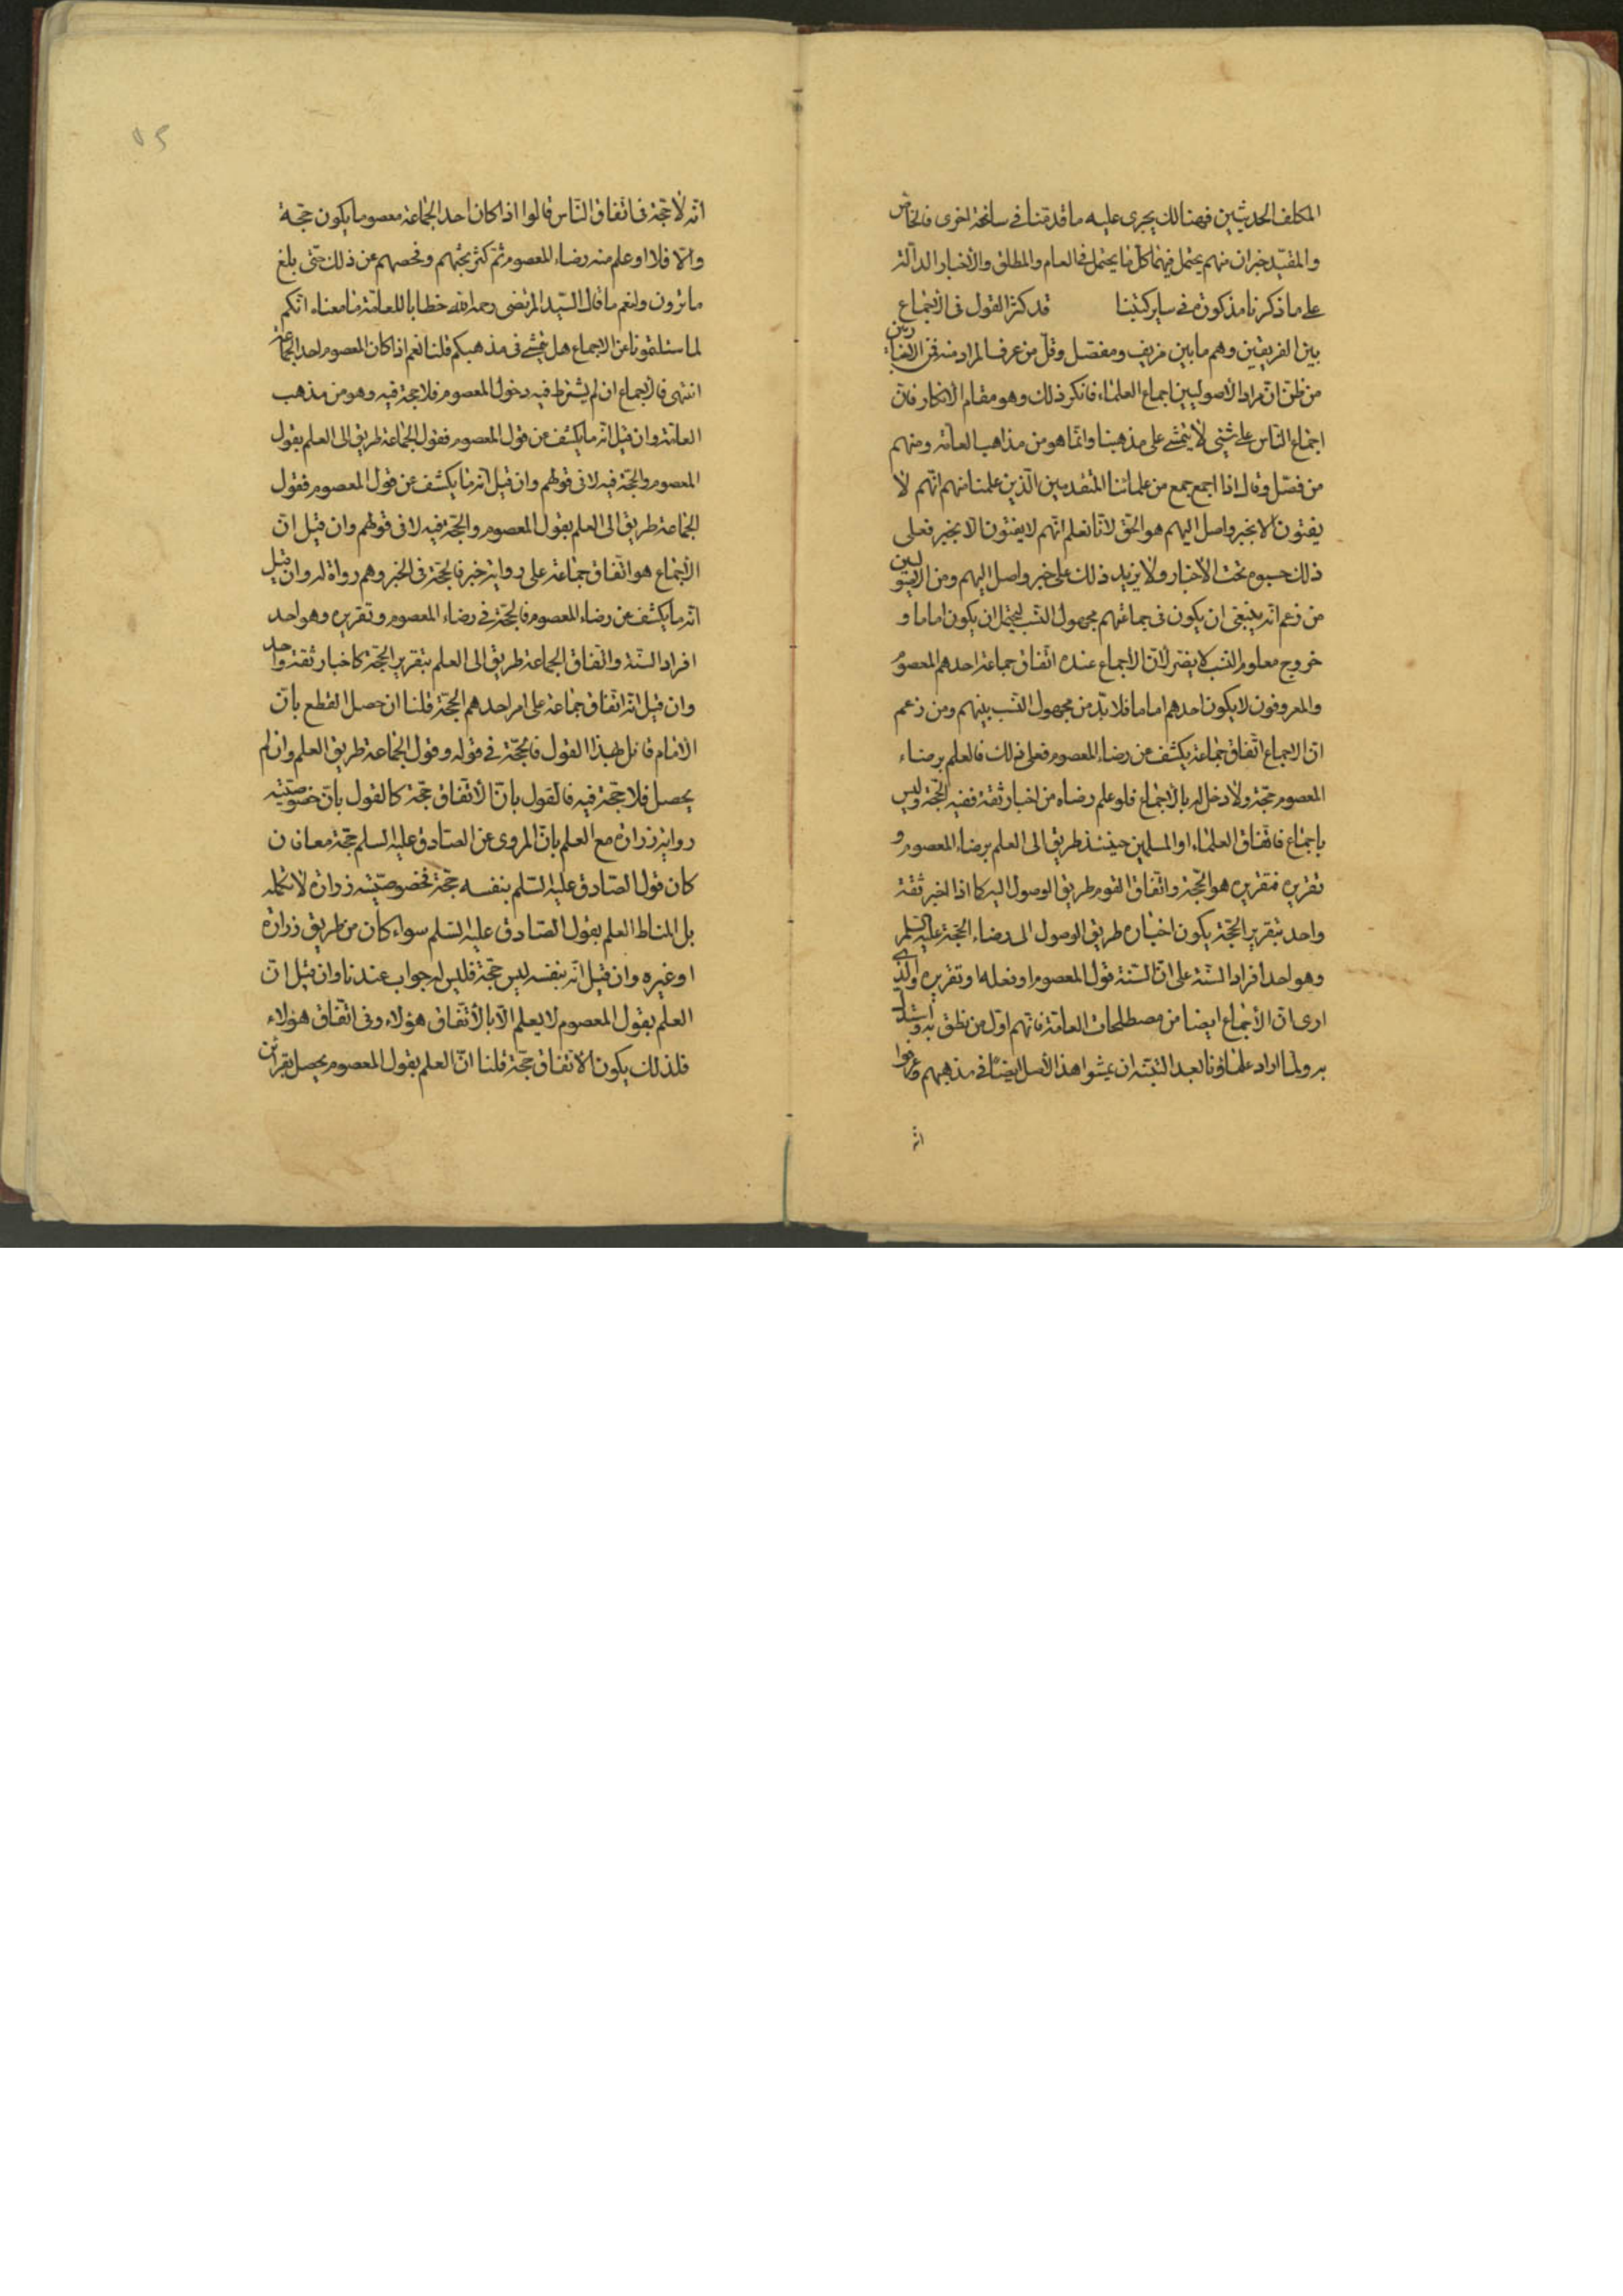 المكلف الحديثين فهنالك يجرى عليه ما قدمنا فى سانحة اخرى فالخاص
والمقيد خبران منهم يحتمل فيهما كل ما يحتمل فى العام والمطلق والأخبار الدالة
على ما ذكرنا مذكورة فى ساير كتبنا قد كثر القول فى الأجماع
بين الفريقين وهم ما بين مزيف ومفصل وقل من عرف المراد منه فمن الأخباريين
من ظن ان مراد الأصوليين اجماع العلماء فانكر ذلك وهو مقام الأنكار فان
اجماع الناس على شئ لا يتمشى على مذهبنا وانما هو من مذاهب العامة ومنهم
من فصل وقال اذا اجمع جمع من علمائنا المتقدمين الذين علمنا منهم انهم لا
يفتون الا بخبر واصل اليهم هو الحق لانا نعلم انهم لا يفتون الا بخبر فعلى
ذلك محبوم تحت الأخبار ولا يزيد ذلك على خبر واصل اليهم ومن الاصوليين
من زعم انه ينبغى ان يكون فى جماعتهم مجهول النسب ليحتمل ان يكون اماما و
خروج معلوم النسب لا يضر لان الاجماع عنده اتفاق جماعة احدهم المعصوم
والمعروفون لا يكون احدهم اماما فلا بد من مجهول النسب بينهم ومن زعم
ان الاجماع اتفاق جماعة يكشف عن رضاء المعصوم فعلى ذلك فالعلم برضاء
المعصوم حجة ولا دخل له بالأجماع فلو علم رضاه من اخبار ثقة ففيه الحجة وليس
باجماع فاتفاق العلماء او المسلمين حينئذ طريق الى العلم برضاء المعصوم و
تقريره فتقريره هو الحجة واتفاق القوم طريق الوصول اليه كما اذا اخبر ثقة
واحد بتقرير الحجة يكون اخباره طريق الوصول الى رضاء الحجة عليه السلم
وهو احد افراد السنة على ان السنة قول المعصوم او فعله او تقريره والذى
ارى ان الأجماع ايضا من مصطلحات العامة فانهم اول من نطق به واستدل
به ولما اراد علماؤنا بعد التتبه ان يمشوا هذا الأصل ايضا فى مذهبهم وعرفوا
انه
انه لا حجة فى اتفاق الناس قالوا اذا كان احد الجماعة معصوما يكون حجة
والا فلا او علم منه رضاء المعصوم ثم كثر بحثهم وفحصهم عن ذلك حتى بلغ
ما ترون ولنعم ما قال السيد المرتضى رحمه الله خطابا للعامة ما معناه انكم
لما سئلتمونا عن الاجماع هل يتمشى فى مذهبكم قلنا نعم اذا كان المعصوم احد الجماعة
انتهى فالأجماع ان لم يشترط فيه دخول المعصوم فلا حجة فيه وهو من مذهب
العامة وان قيل انه ما يكشف عن قول المعصوم فقول الجماعة طريق الى العلم بقول
المعصوم والحجة فيه لا فى قولهم وان قيل انه ما يكشف عن قول المعصوم فقول
الجماعة طريق الى العلم بقول المعصوم والحجة فيه لا فى قولهم وان قيل ان
الأجماع هو اتفاق جماعة على رواية خبر فالحجة فى الخبر وهم رواة له وان قيل
انه ما يكشف عن رضاء المعصوم فالحجة فى رضاء المعصوم وتقريره وهو احد
افراد السنة واتفاق الجماعة طريق الى العلم بتقرير الحجة كاخبار ثقة واحد
وان قيل انه اتفاق جماعة على امر احدهم الحجة قلنا ان حصل القطع بان
الامام قائل بهذا القول فالحجة فى قوله وقول الجماعة طريق العلم وان لم
يحصل فلا حجة فيه فالقول بان الأتفاق حجة كالقول بان خصوصية
رواية زرارة مع العلم بان المروى عن الصادق عليه السلم حجة معا فان
كان قول الصادق عليه السلم بنفسه حجة فخصوصية زرارة لا تكمله
بل المناط العلم بقول الصادق عليه السلم سواء كان من طريق زرارة
او غيره وان قيل انه بنفسه ليس حجة فليس له جواب عندنا وان قيل ان
العلم بقول المعصوم لا يعلم الا بالأتفاق هؤلاء وفى اتفاق هؤلاء
فلذلك يكون الأتفاق حجة قلنا ان العلم بقول المعصوم يحصل بقرائن